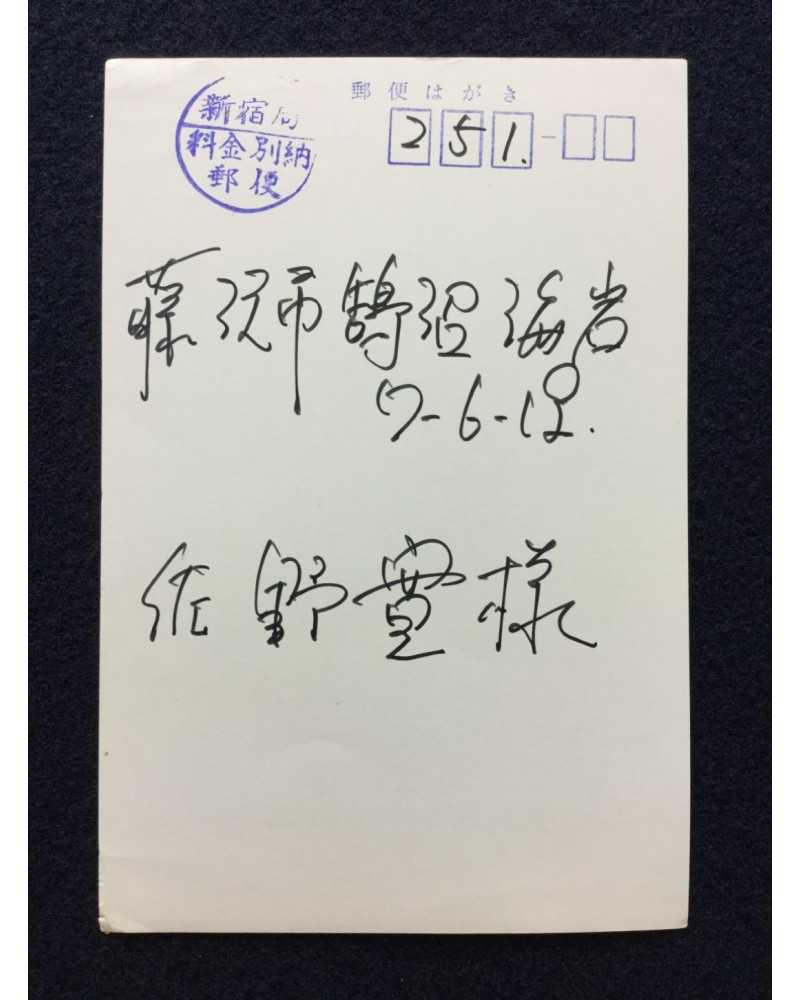 新宿局
料金別納
郵便
郵便はがき
251.-
藤沢市鵠沼海岸
7-6-18.
佐野豊様